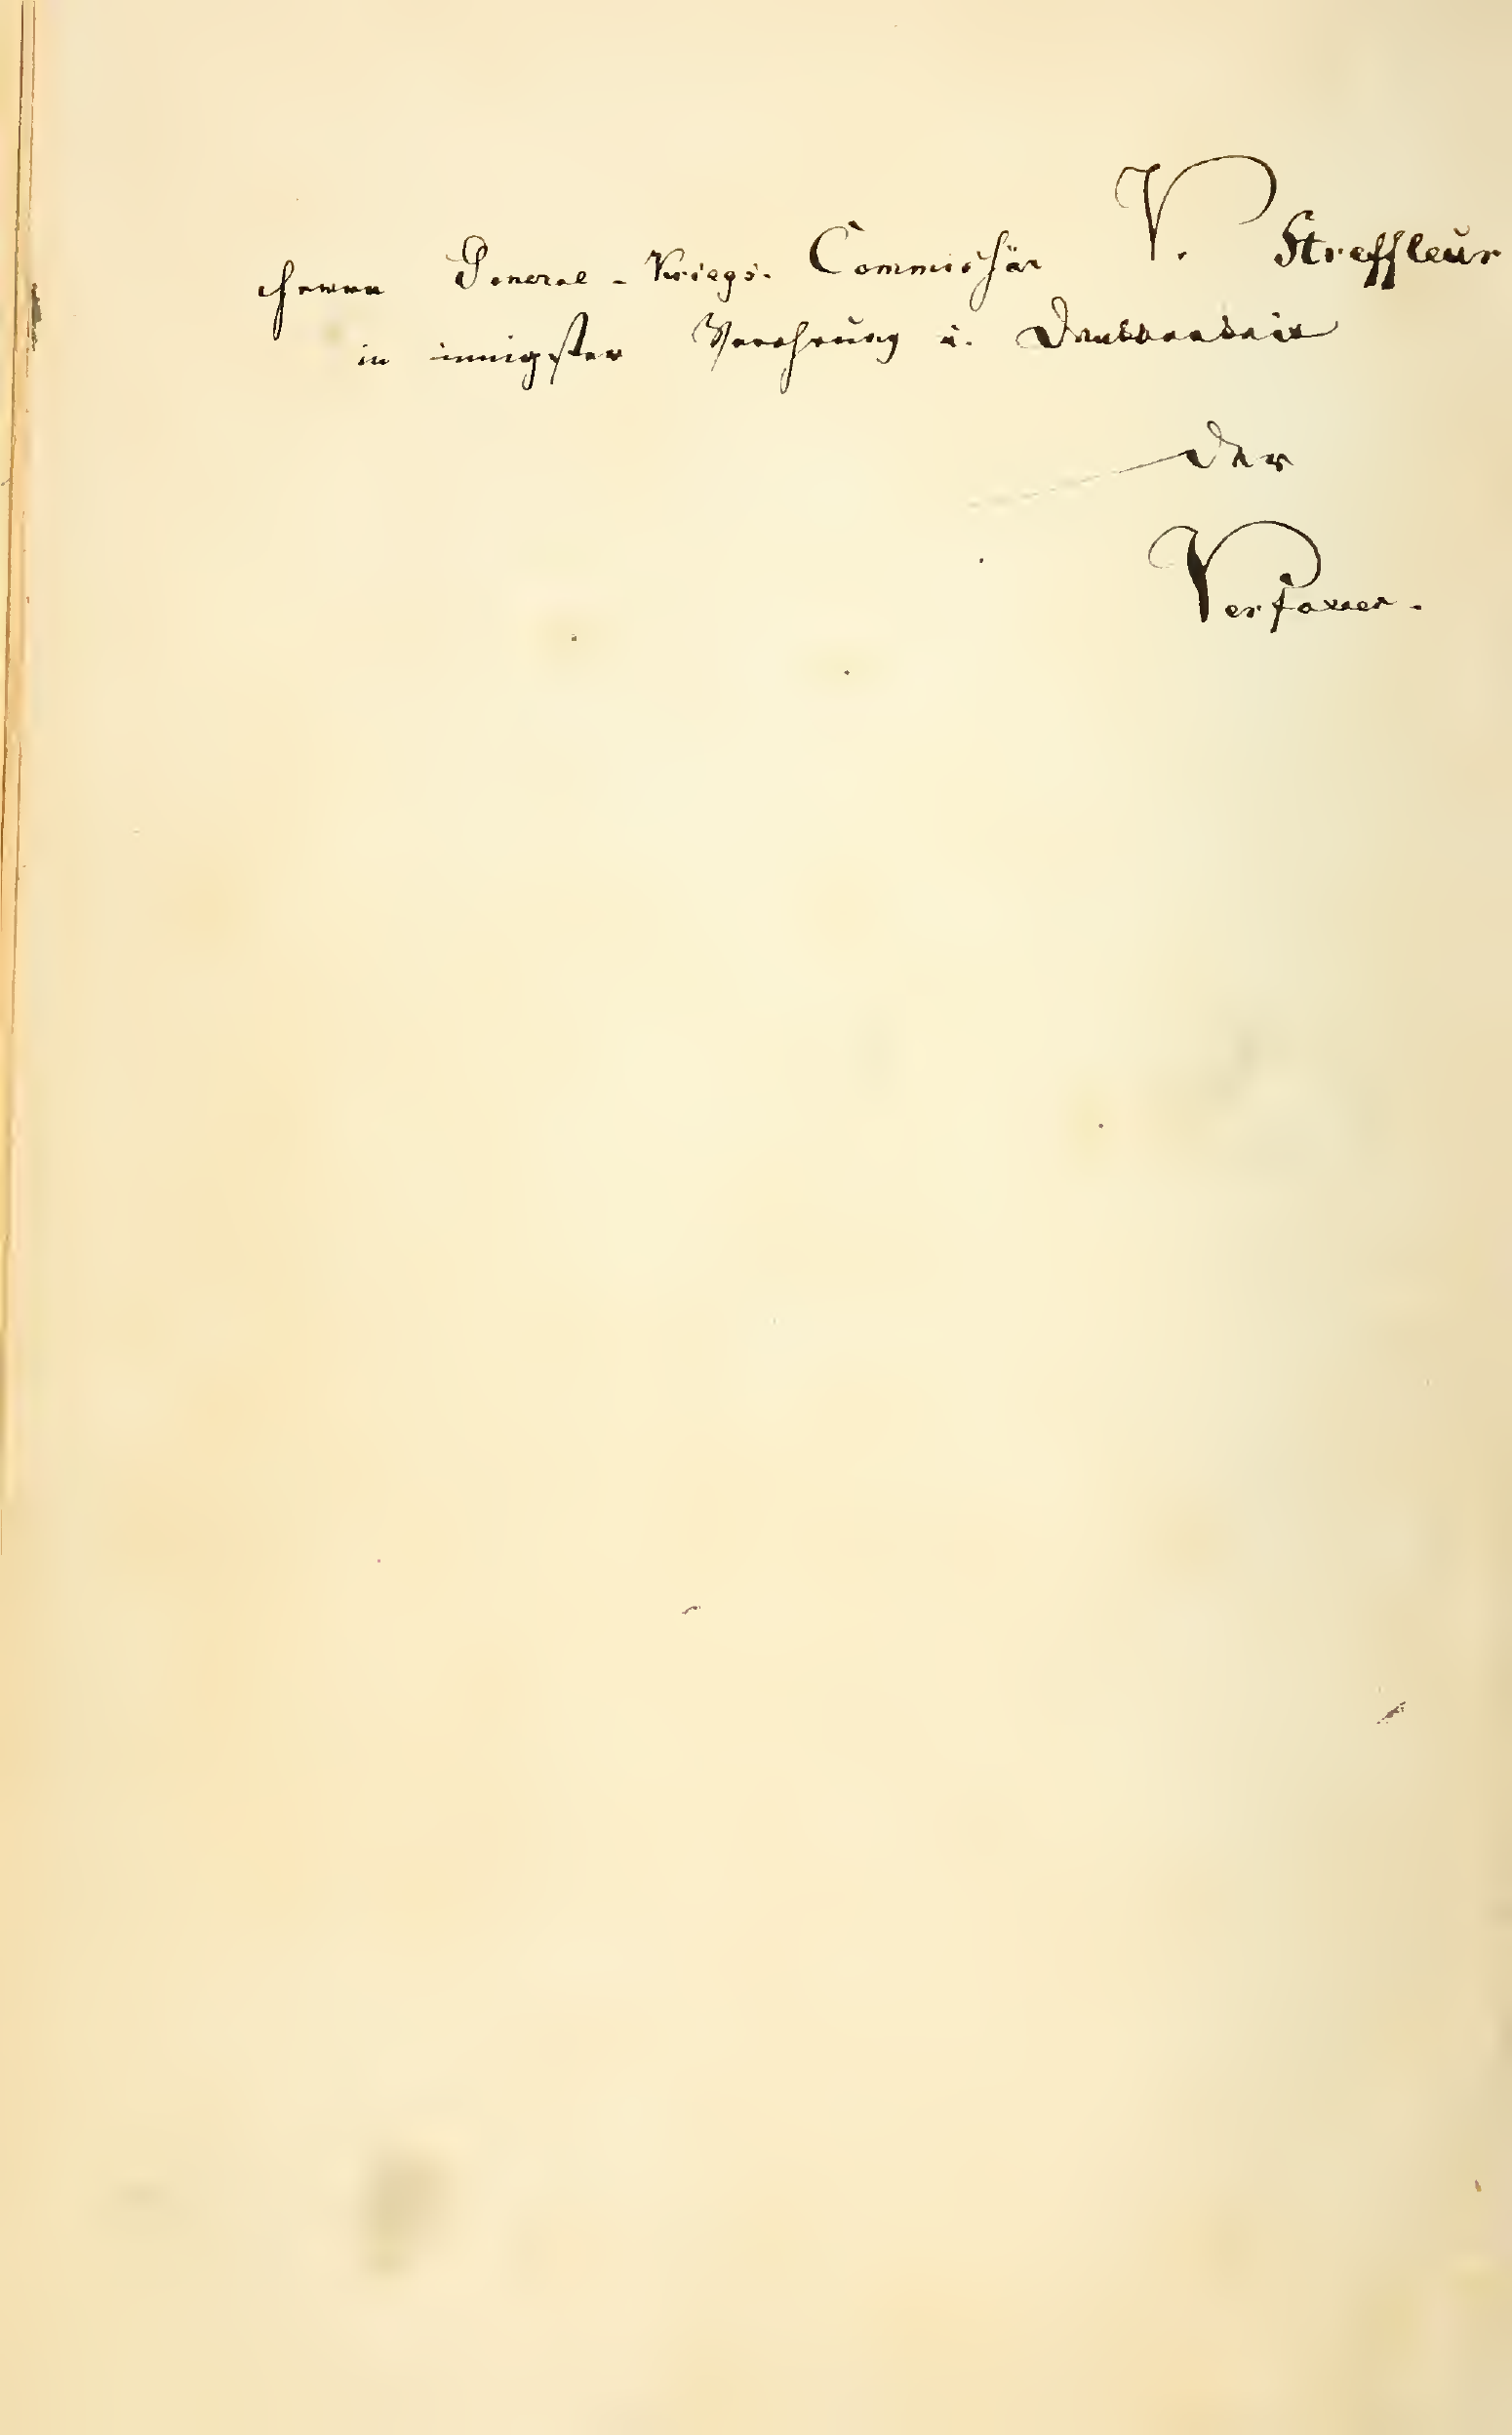 Herrn General-Kriegs-Commissär V. Streffleur
in innigster Verehrung u. Dankbarkeit
der
Verfasser.